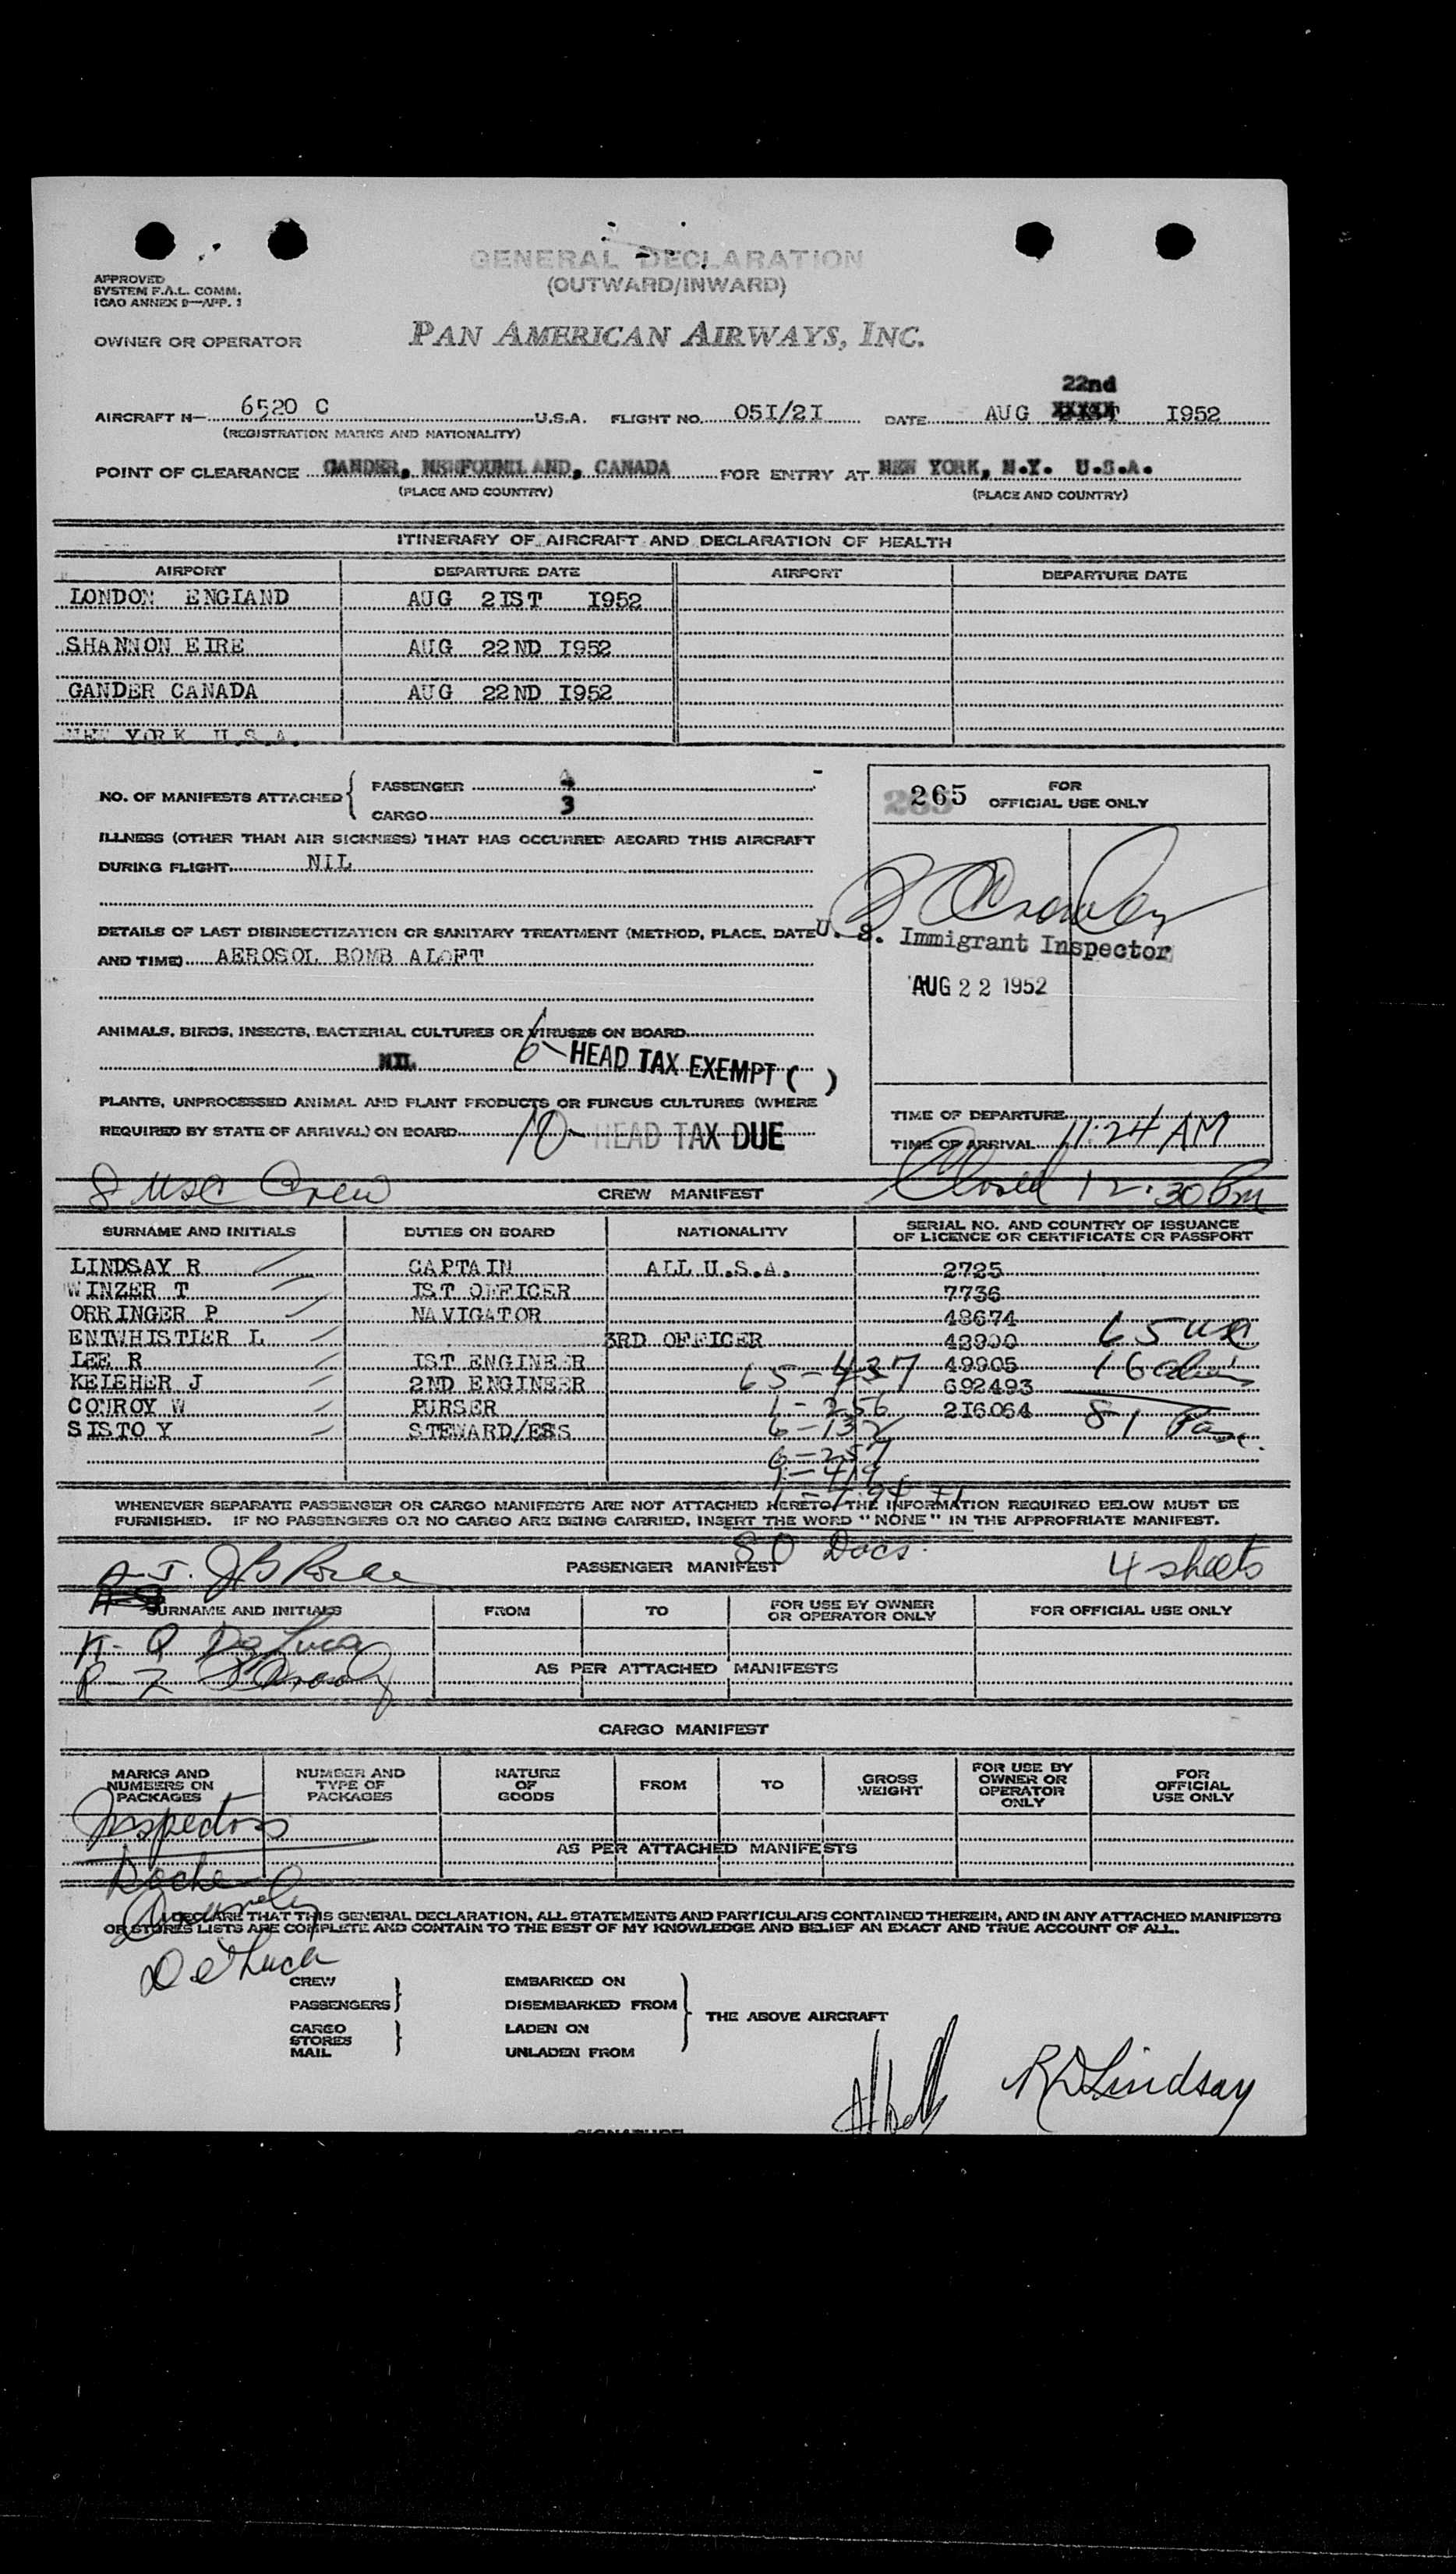 GENERAL DECLARATION
(OUTWARD/INWARD)
APPROVED
SYSTEM F.A.L. COMM.
ICAO ANNEX 9—APP. 1
OWNER OR OPERATOR PAN AMERICAN AIRWAYS, INC.
22nd
AIRCRAFT N— 6520 C U.S.A. FLIGHT NO. 05I/2I DATE AUG I952
(REGISTRATION MARKS AND NATIONALITY)
POINT OF CLEARANCE GANDER, NEWFOUNDLAND, CANADA FOR ENTRY AT NEW YORK, N.Y. U.S.A.
(PLACE AND COUNTRY) (PLACE AND COUNTRY)
ITINERARY OF AIRCRAFT AND DECLARATION OF HEALTH
AIRPORT DEPARTURE DATE AIRPORT DEPARTURE DATE
LONDON ENGLAND AUG 2IST I952
SHANNON EIRE AUG 22ND I952
GANDER CANADA AUG 22ND I952
NEW YORK U.S.A.
NO. OF MANIFESTS ATTACHED PASSENGER
CARGO 3
265 FOR
OFFICIAL USE ONLY
ILLNESS (OTHER THAN AIR SICKNESS) THAT HAS OCCURRED ABOARD THIS AIRCRAFT
DURING FLIGHT NIL
DETAILS OF LAST DISINSECTIZATION OR SANITARY TREATMENT (METHOD, PLACE, DATE
AND TIME) AEROSOL BOMB ALOFT
U. S. Immigrant Inspector
AUG 22 1952
ANIMALS, BIRDS, INSECTS, BACTERIAL CULTURES OR VIRUSES ON BOARD
NIL 6 - HEAD TAX EXEMPT ( )
PLANTS, UNPROCESSED ANIMAL AND PLANT PRODUCTS OR FUNGUS CULTURES (WHERE
REQUIRED BY STATE OF ARRIVAL) ON BOARD 10 - HEAD TAX DUE
TIME OF DEPARTURE
TIME OF ARRIVAL 11:24 AM
Closed 12:30 Pm
8 USC Crew CREW MANIFEST
SURNAME AND INITIALS DUTIES ON BOARD NATIONALITY SERIAL NO. AND COUNTRY OF ISSUANCE
OF LICENCE OR CERTIFICATE OR PASSPORT
LINDSAY R CAPTAIN ALL U.S.A. 2725
WINZER T IST OFFICER 7736
ORRINGER P NAVIGATOR 48674
ENTWHISTLER L 3RD OFFICER 43900 65 usc
LEE R IST ENGINEER 65-437 49905 16 aliens
KELEHER J 2ND ENGINEER 692493
CONROY W PURSER 1-256 2I6064 81 Pass.
SISTO Y STEWARD/ESS 6-132
6-257
1-419
WHENEVER SEPARATE PASSENGER OR CARGO MANIFESTS ARE NOT ATTACHED HERETO, THE INFORMATION REQUIRED BELOW MUST BE
FURNISHED. IF NO PASSENGERS OR NO CARGO ARE BEING CARRIED, INSERT THE WORD "NONE" IN THE APPROPRIATE MANIFEST.
80 Docs. 4 sheets
PASSENGER MANIFEST
SURNAME AND INITIALS FROM TO FOR USE BY OWNER
OR OPERATOR ONLY FOR OFFICIAL USE ONLY
K-Q De Luca
R-Z
AS PER ATTACHED MANIFESTS
CARGO MANIFEST
MARKS AND
NUMBERS ON
PACKAGES NUMBER AND
TYPE OF
PACKAGES NATURE
OF
GOODS FROM TO GROSS
WEIGHT FOR USE BY
OWNER OR
OPERATOR
ONLY FOR
OFFICIAL
USE ONLY
Inspectors
AS PER ATTACHED MANIFESTS
I DECLARE THAT THIS GENERAL DECLARATION, ALL STATEMENTS AND PARTICULARS CONTAINED THEREIN, AND IN ANY ATTACHED MANIFESTS
OR STORES LISTS ARE COMPLETE AND CONTAIN TO THE BEST OF MY KNOWLEDGE AND BELIEF AN EXACT AND TRUE ACCOUNT OF ALL.
De Luca
CREW EMBARKED ON
PASSENGERS DISEMBARKED FROM THE ABOVE AIRCRAFT
CARGO LADEN ON
STORES
MAIL UNLADEN FROM
RD Lindsay